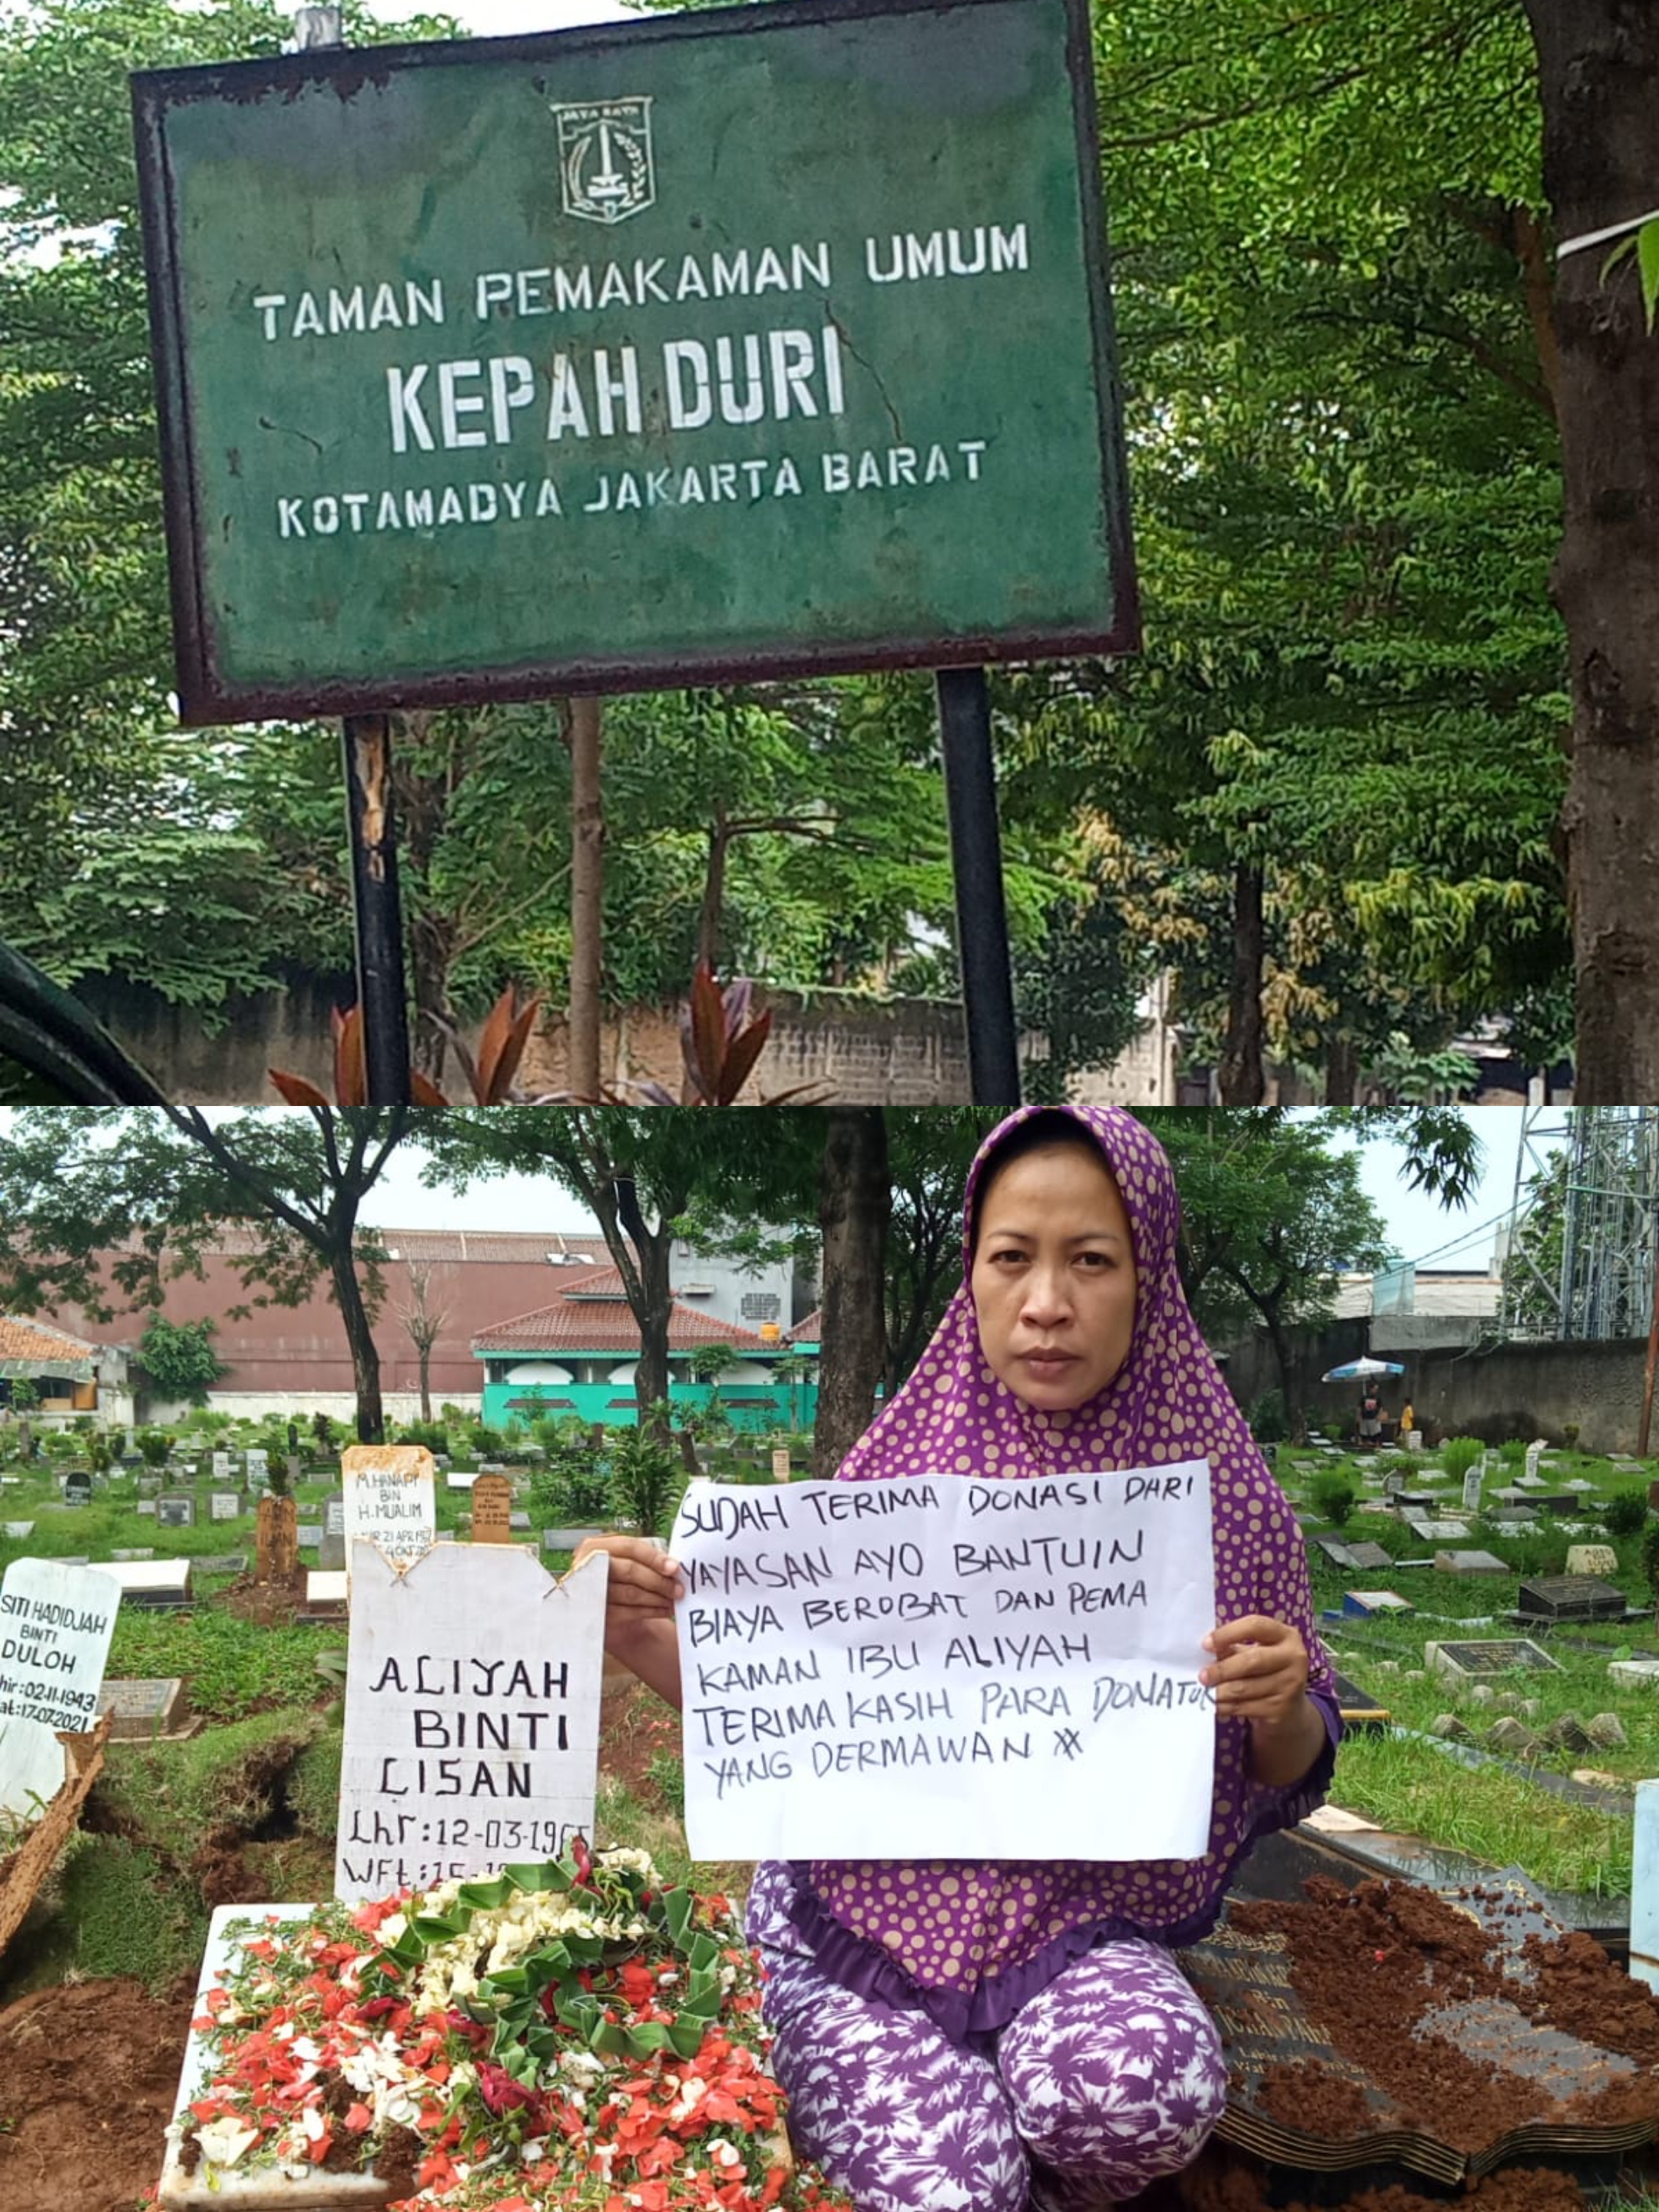 JAYA RAYA
TAMAN PEMAKAMAN UMUM
KEPAH DURI
KOTAMADYA JAKARTA BARAT
M. HANAPI
BIN
H. MUALIM
SITI HADIDJAH
BINTI
DULOH
hir:02-11-1943
at:17-07-2021
ALIYAH
BINTI
LISAN
Lhr:12-03-19
Wft:15-
SUDAH TERIMA DONASI DARI
YAYASAN AYO BANTUIN
BIAYA BEROBAT DAN PEMA
KAMAN IBU ALIYAH
TERIMA KASIH PARA DONATUR
YANG DERMAWAN